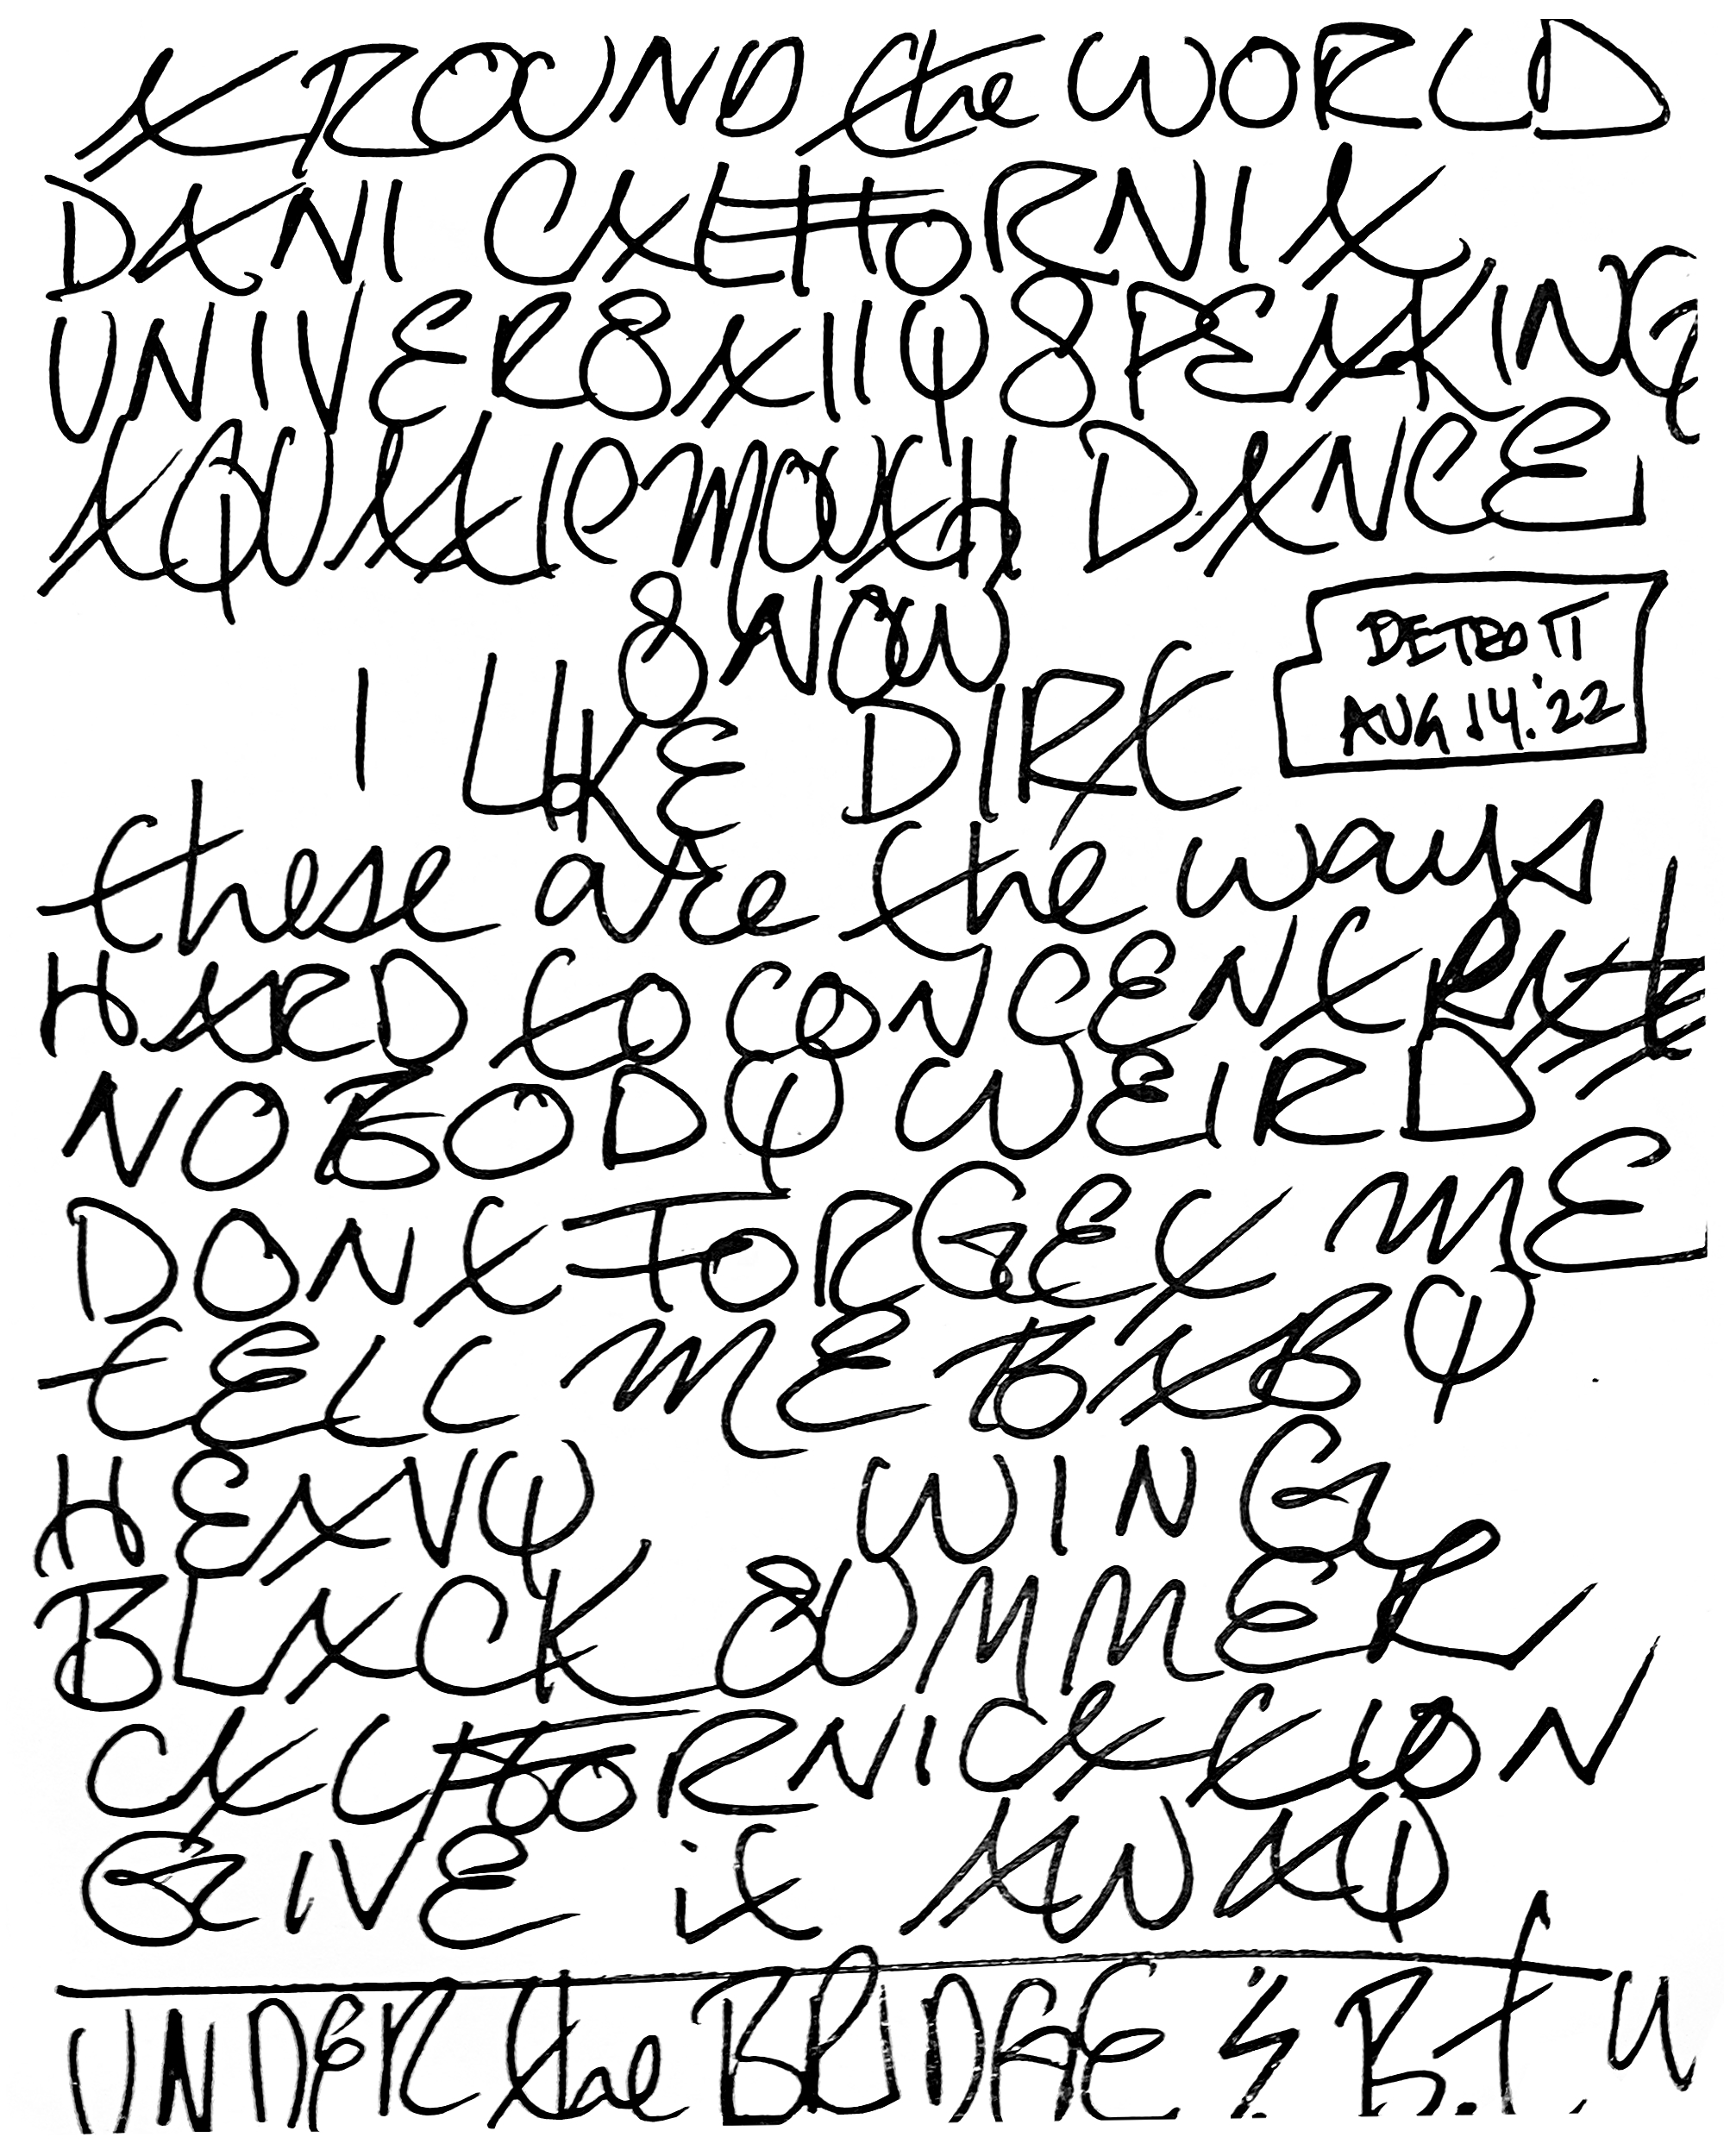 AROUND the WORLD
DANI CALIFORNIA
UNIVERSALLY SPEAKING
AQUATIC MOUTH DANCE
SNOW
I LIKE DIRT
DETROIT
AUG 14.'22
these are the ways
HARD to CONCENTRATE
NOBODY WEIRD
DONT FORGET ME
tELL ME BABY
HEAVY WING
BLACK SUMMER
CALIFORNICATION
GIVE it AWAY
UNDER the BRIDGE & B.t.W